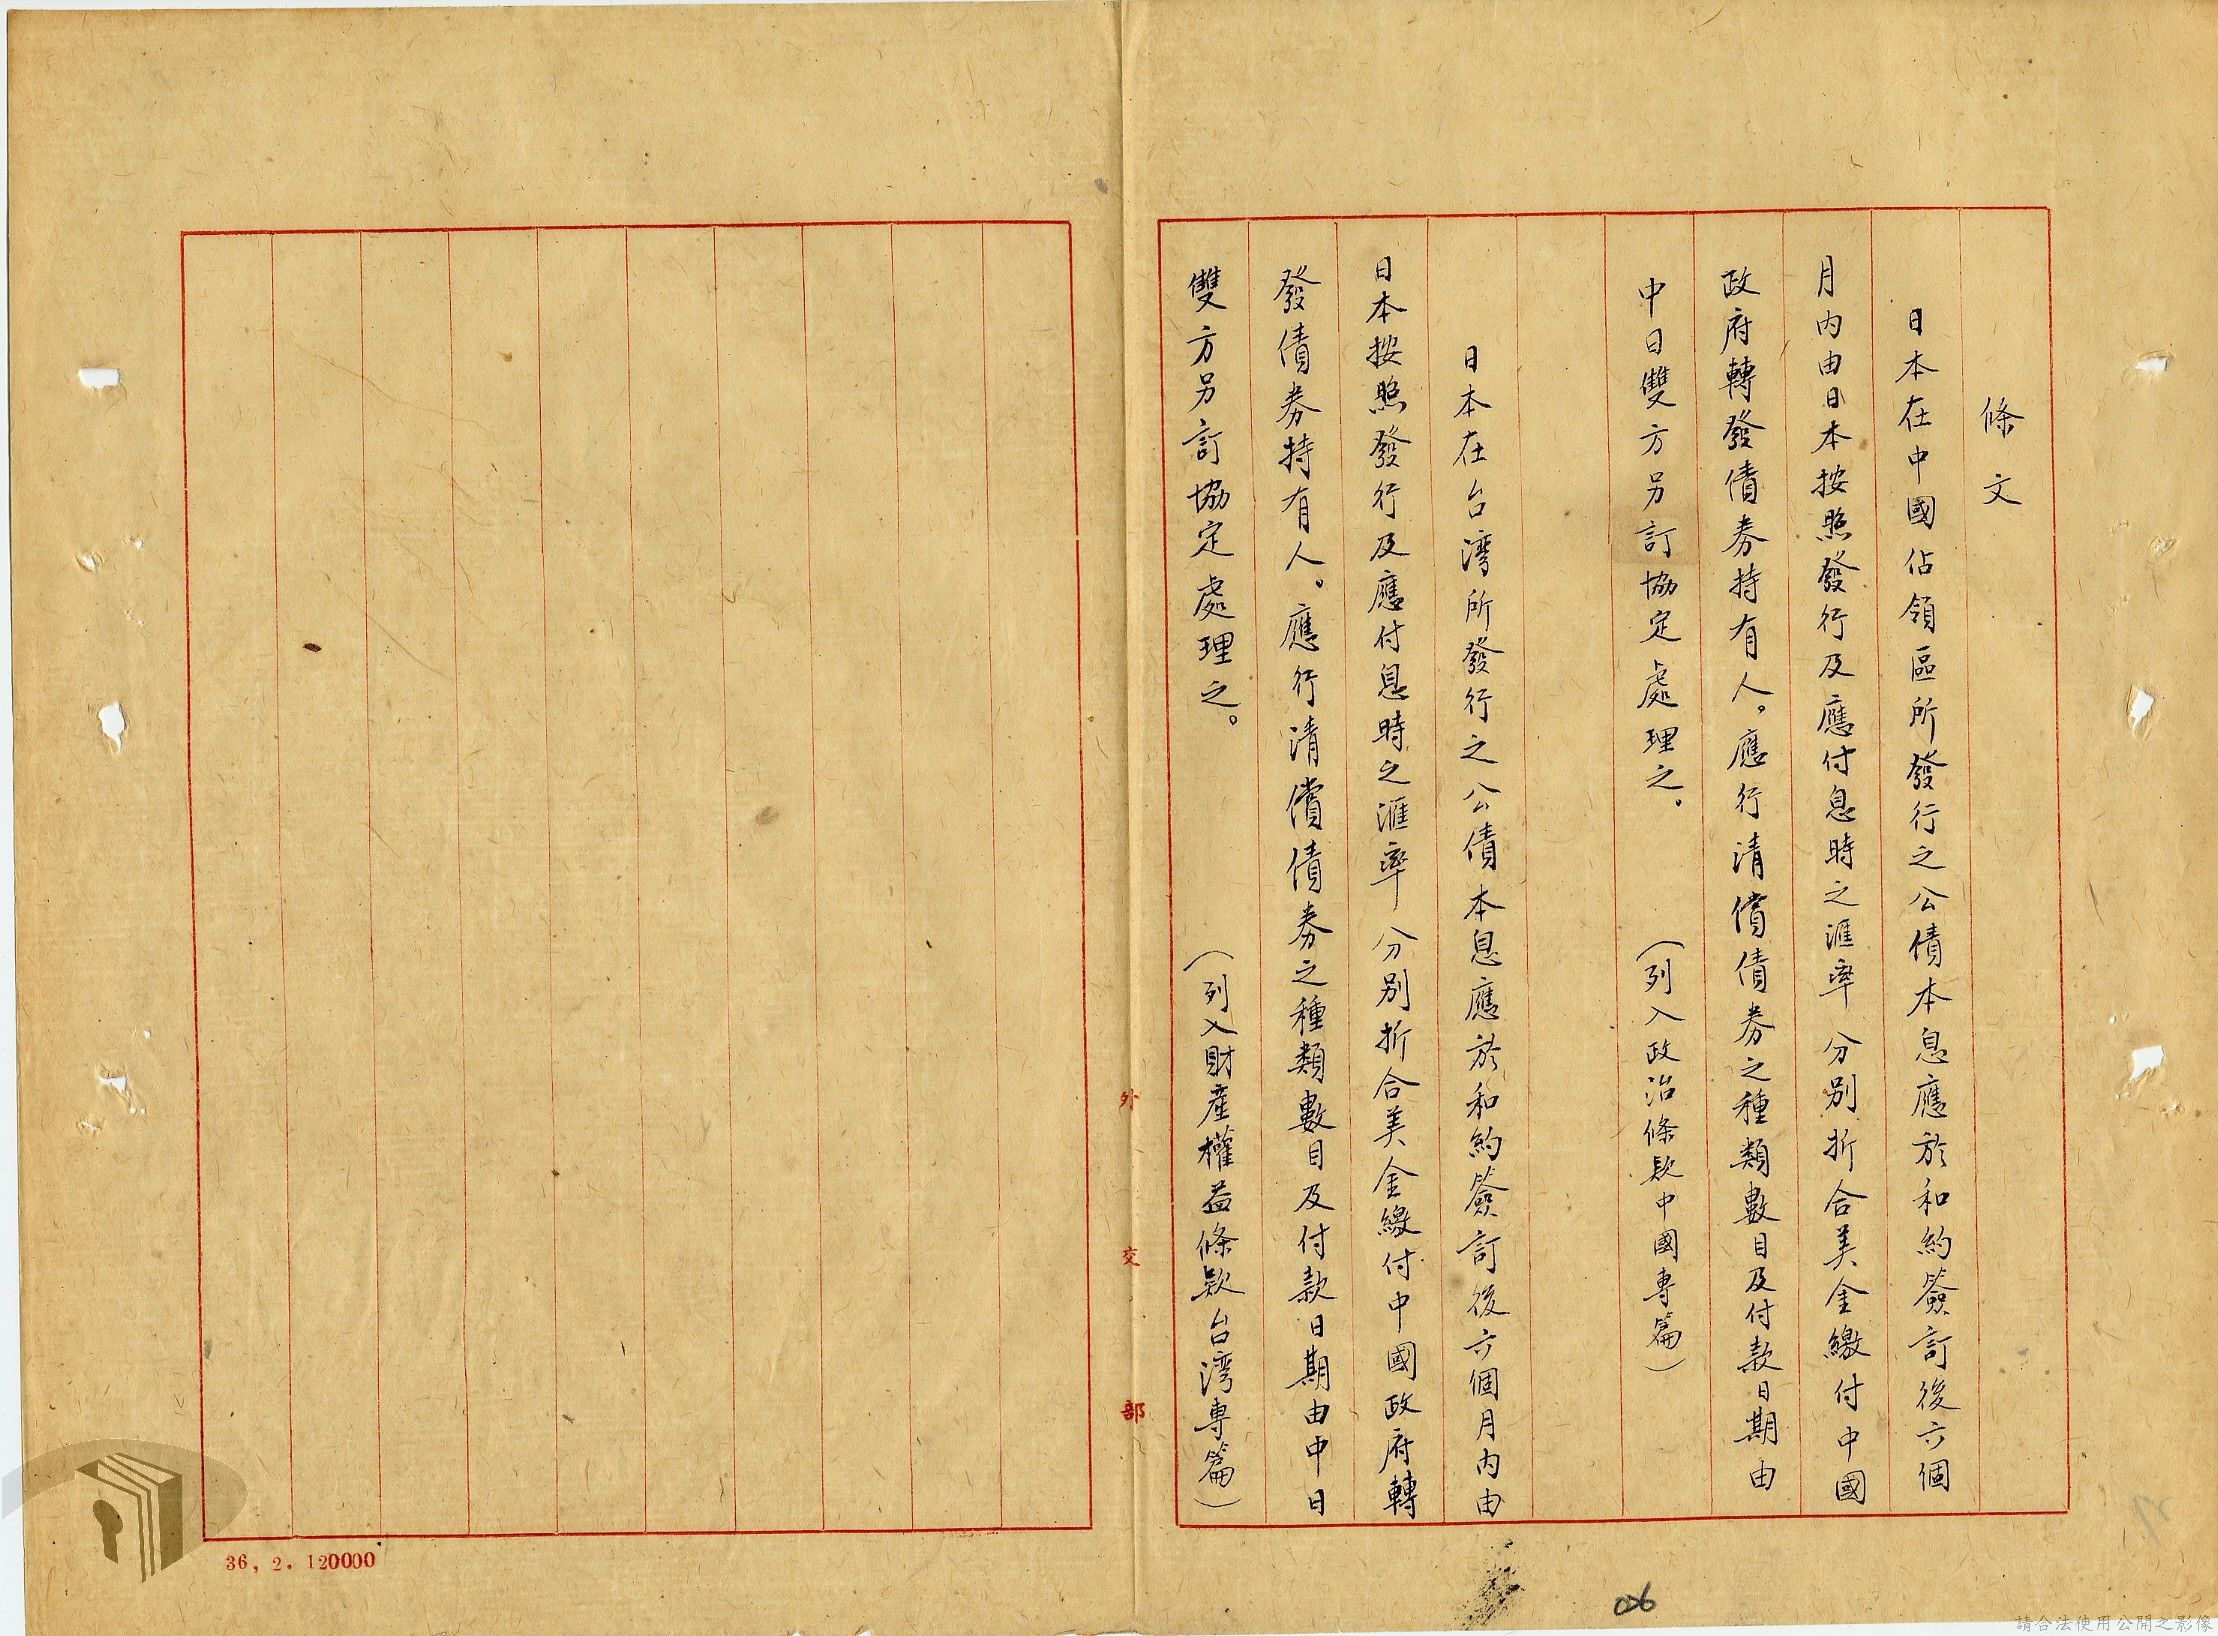 條文
日本在中國佔領區所發行之公債本息應於和約簽訂後六個
月內由日本按照發行及應付息時之滙率分別折合美金繳付中國
政府轉發債券持有人。應行清償債券之種類數目及付款日期由
中日雙方另訂協定處理之。（列入政治條款中國專篇）
日本在台湾所發行之公債本息應於和約簽訂後六個月內由
日本按照發行及應付息時之滙率分別折合美金繳付中國政府轉
發債券持有人。應行清償債券之種類數目及付款日期由中日
雙方另訂協定處理之。（列入財產權益條款台湾專篇）
外交部
36，2．120000
006
請合法使用公開之影像